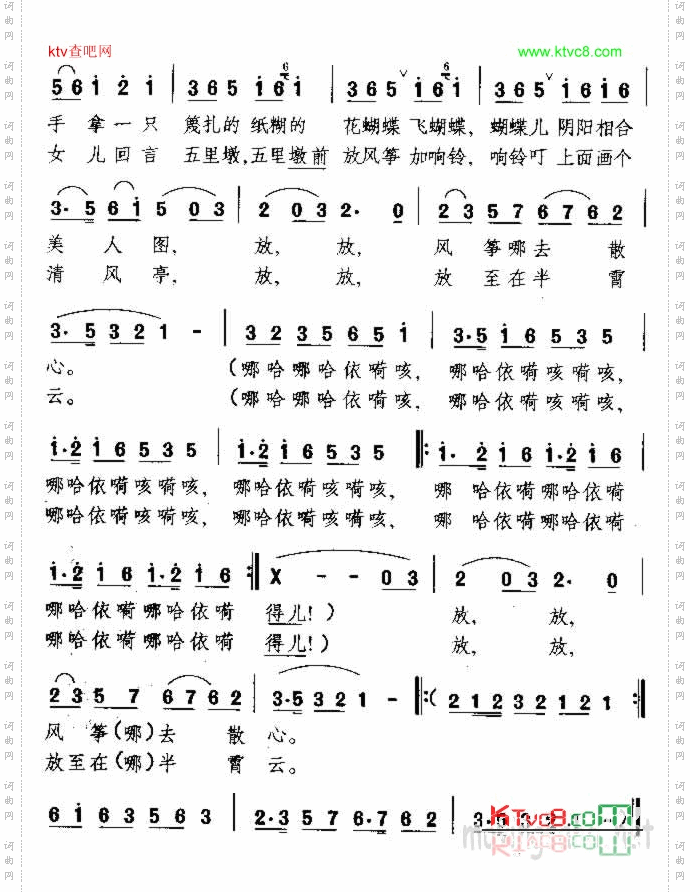 ktv查吧网 www.ktvc8.com
5 6 1 2 1 | 3 6 5 1 6 6 1 | 3 6 5 1 6 6 1 | 3 6 5 1 6 1 6 |
手拿一只 篾扎的纸糊的 花蝴蝶飞蝴蝶, 蝴蝶儿阴阳相合
女儿回言 五里墩,五里墩前 放风筝加响铃, 响铃叮上面画个
3· 5 6 1 5 0 3 | 2 0 3 2· 0 | 2 3 5 7 6 7 6 2 |
美人图, 放, 放, 风筝哪去散
清风亭, 放, 放, 放至在半霄
3· 5 3 2 1 - | 3 2 3 5 6 5 1 | 3·5 1 6 5 3 5 |
心。 (哪哈哪哈依嗬咳, 哪哈依嗬咳嗬咳,
云。 (哪哈哪哈依嗬咳, 哪哈依嗬咳嗬咳,
1·2 1 6 5 3 5 | 1·2 1 6 5 3 5 |: 1· 2 1 6 1·2 1 6 |
哪哈依嗬咳嗬咳, 哪哈依嗬咳嗬咳, 哪 哈依嗬哪哈依嗬
哪哈依嗬咳嗬咳, 哪哈依嗬咳嗬咳, 哪 哈依嗬哪哈依嗬
1·2 1 6 1·2 1 6 :| X - - 0 3 | 2 0 3 2· 0 |
哪哈依嗬哪哈依嗬 得儿!) 放, 放,
哪哈依嗬哪哈依嗬 得儿!) 放, 放,
2 3 5 7 6 7 6 2 | 3·5 3 2 1 - |:( 2 1 2 3 2 1 2 1 :|
风筝(哪)去散心。
放至在(哪)半霄云。
6 1 6 3 5 6 3 | 2·3 5 7 6·7 6 2 | 3·
KTvc8.com
词曲网